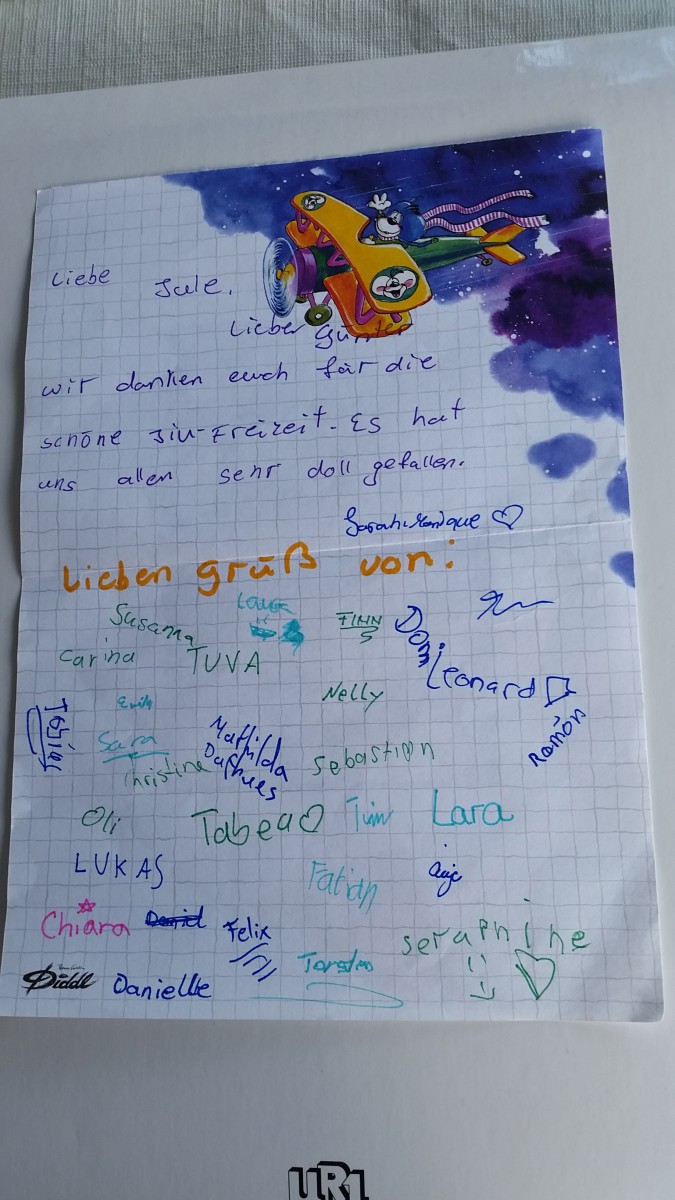 Liebe Jule.
Lieber Günter
wir danken euch für die
schöne Jiu-Freizeit. Es hat
uns allen sehr doll gefallen.
Sarah-Monique
Lieben grüß von:
Susanna
Laura
FINN
Domi
Carina
TUVA
Leonard
Nelly
Ramón
Tobias
Emily
Sara
Mathilda
Daphues
Christine
Sebastian
Oli
Tabea
Tim
Lara
LUKAS
Fabian
Chiara
Daniel
Felix
seraphine
Torsten
Diddl
Danielle
URI